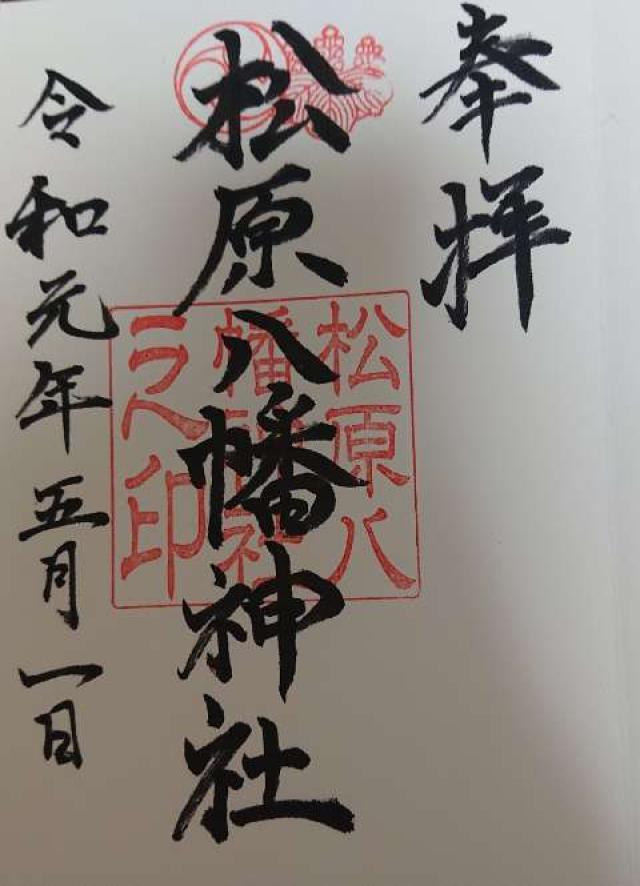 奉拝
松原八幡神社
令和元年五月一日
松原八
幡神社
之印